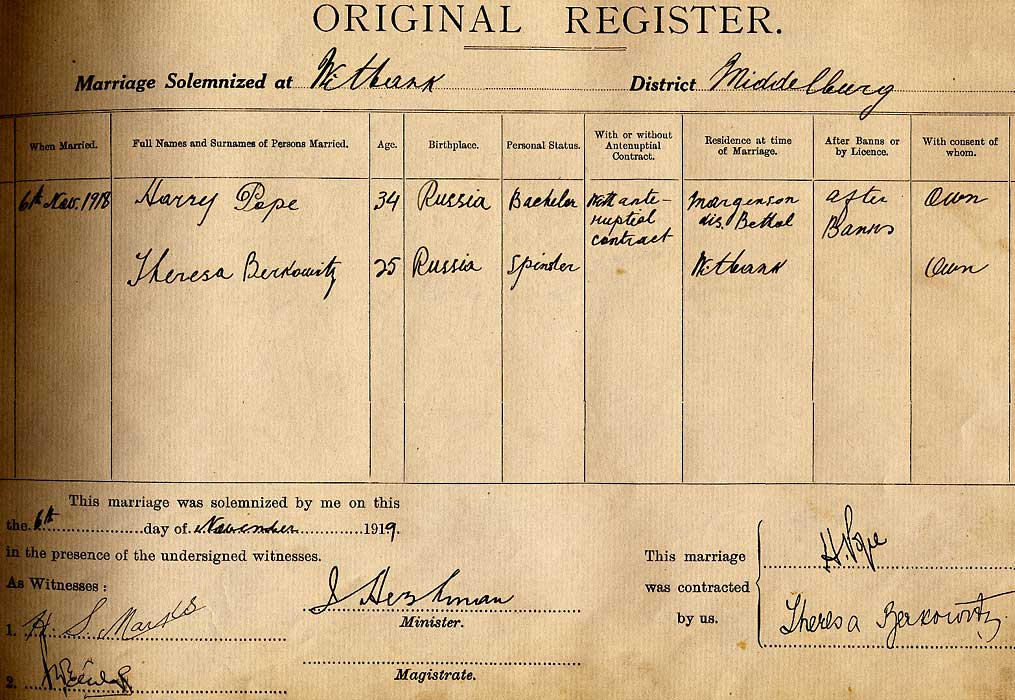 ORIGINAL REGISTER.
Marriage Solemnized at Witbank District Middelburg
When Married. Full Names and Surnames of Persons Married. Age. Birthplace. Personal Status. With or without Antenuptial Contract. Residence at time of Marriage. After Banns or by Licence. With consent of whom.
6th Nov. 1918 Harry Pope 34 Russia Bachelor With ante- Morgenson after Own
nuptial dis. Bethal Banns
contract
Theresa Berkowitz 25 Russia Spinster Witbank Own
This marriage was solemnized by me on this
the 6th day of November 1919.
in the presence of the undersigned witnesses.
As Witnesses :
1. H S Marks
2.
Hershman
Minister.
Magistrate.
This marriage
was contracted
by us.
H. Pope
Theresa Berkowitz